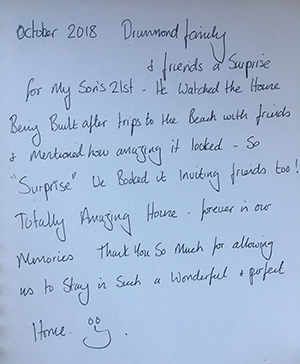 October 2018 Drummond family
& friends a Surprise
for My Son's 21st - He Watched the House
Being Built after trips to the Beach with friends
& Mentioned how amazing it looked - So
"Surprise" We Booked it Inviting friends too!
Totally Amazing House - forever in our
Memories Thank You So Much for allowing
us to Stay in Such a Wonderful & perfect
Home.